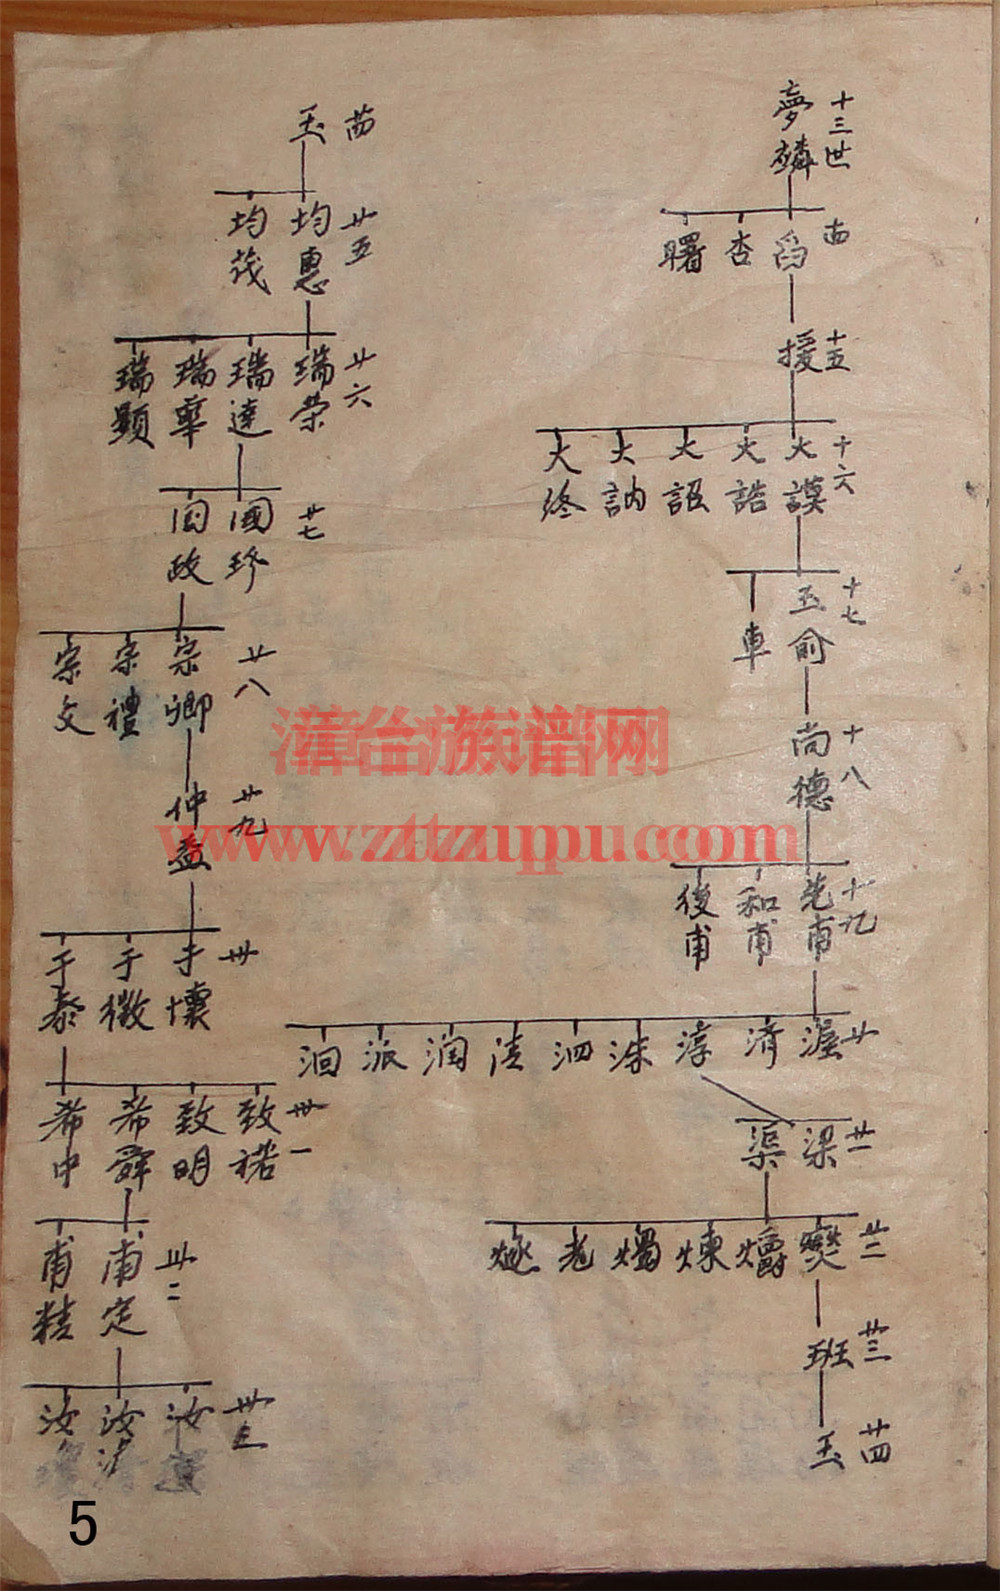 十三世
夢麟
十四
為 杏 曙
十五
援
十六
大謨 大誥 大詔 大訥 大終
十七
玉俞 車
十八
尚德
十九
先甫 和甫 後甫
廿
渥 濟 淳 洙 泗 洼 润 派 洄
廿一
梁 渠
廿二
爕 爝 煉 燭 老 燧
廿三
班
廿四
玉
廿四
玉
廿五
均惠 均茂
廿六
瑞荣 瑞達 瑞華 瑞顯
廿七
國珍 国政
廿八
宗卿 宗禮 宗文
廿九
仲益
卅
于懷 于徵 于泰
卅一
致禧 致明 希舜 希中
卅二
甫定 甫精
卅三
汝 汝 汝
漳台族谱网
www.zttzupu.com
5